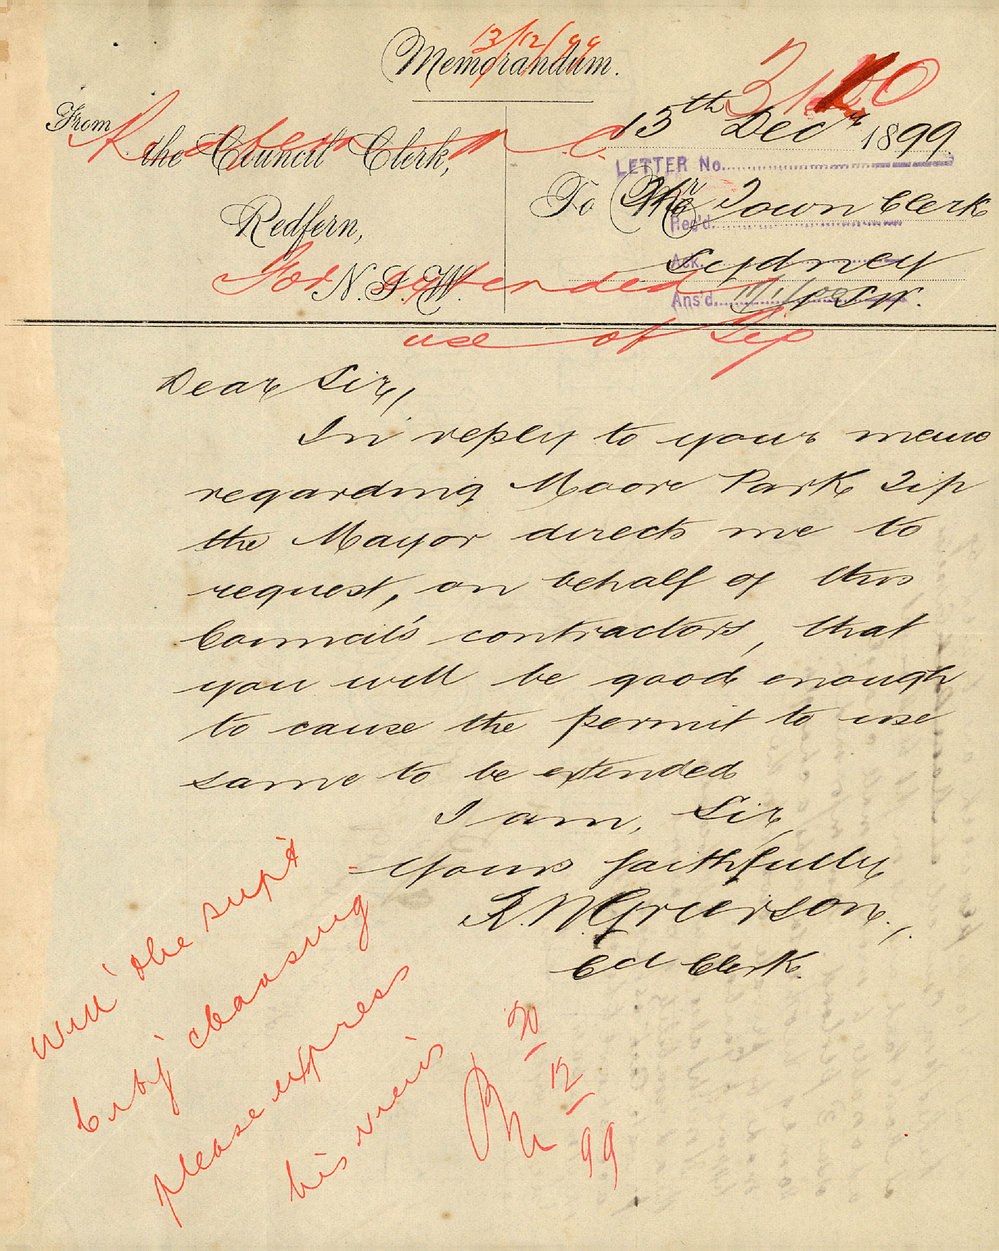 13/12/99
Memorandum.
From
the Council Clerk,
Redfern,
N.S.W.
13th Decr 1899
LETTER No.
To Mr Town Clerk
Rec'd.
Sydney
Ack.
Ans'd.
For extended
use of tip
Dear Sir,
In reply to your memo
regarding Moore Park Tip
the Mayor directs me to
request, on behalf of this
Council's contractors, that
you will be good enough
to cause the permit to use
same to be extended
I am, Sir,
Yours faithfully
Grierson,
Ccl Clerk.
Will the supt
City cleansing
please express
his views
20
12
99